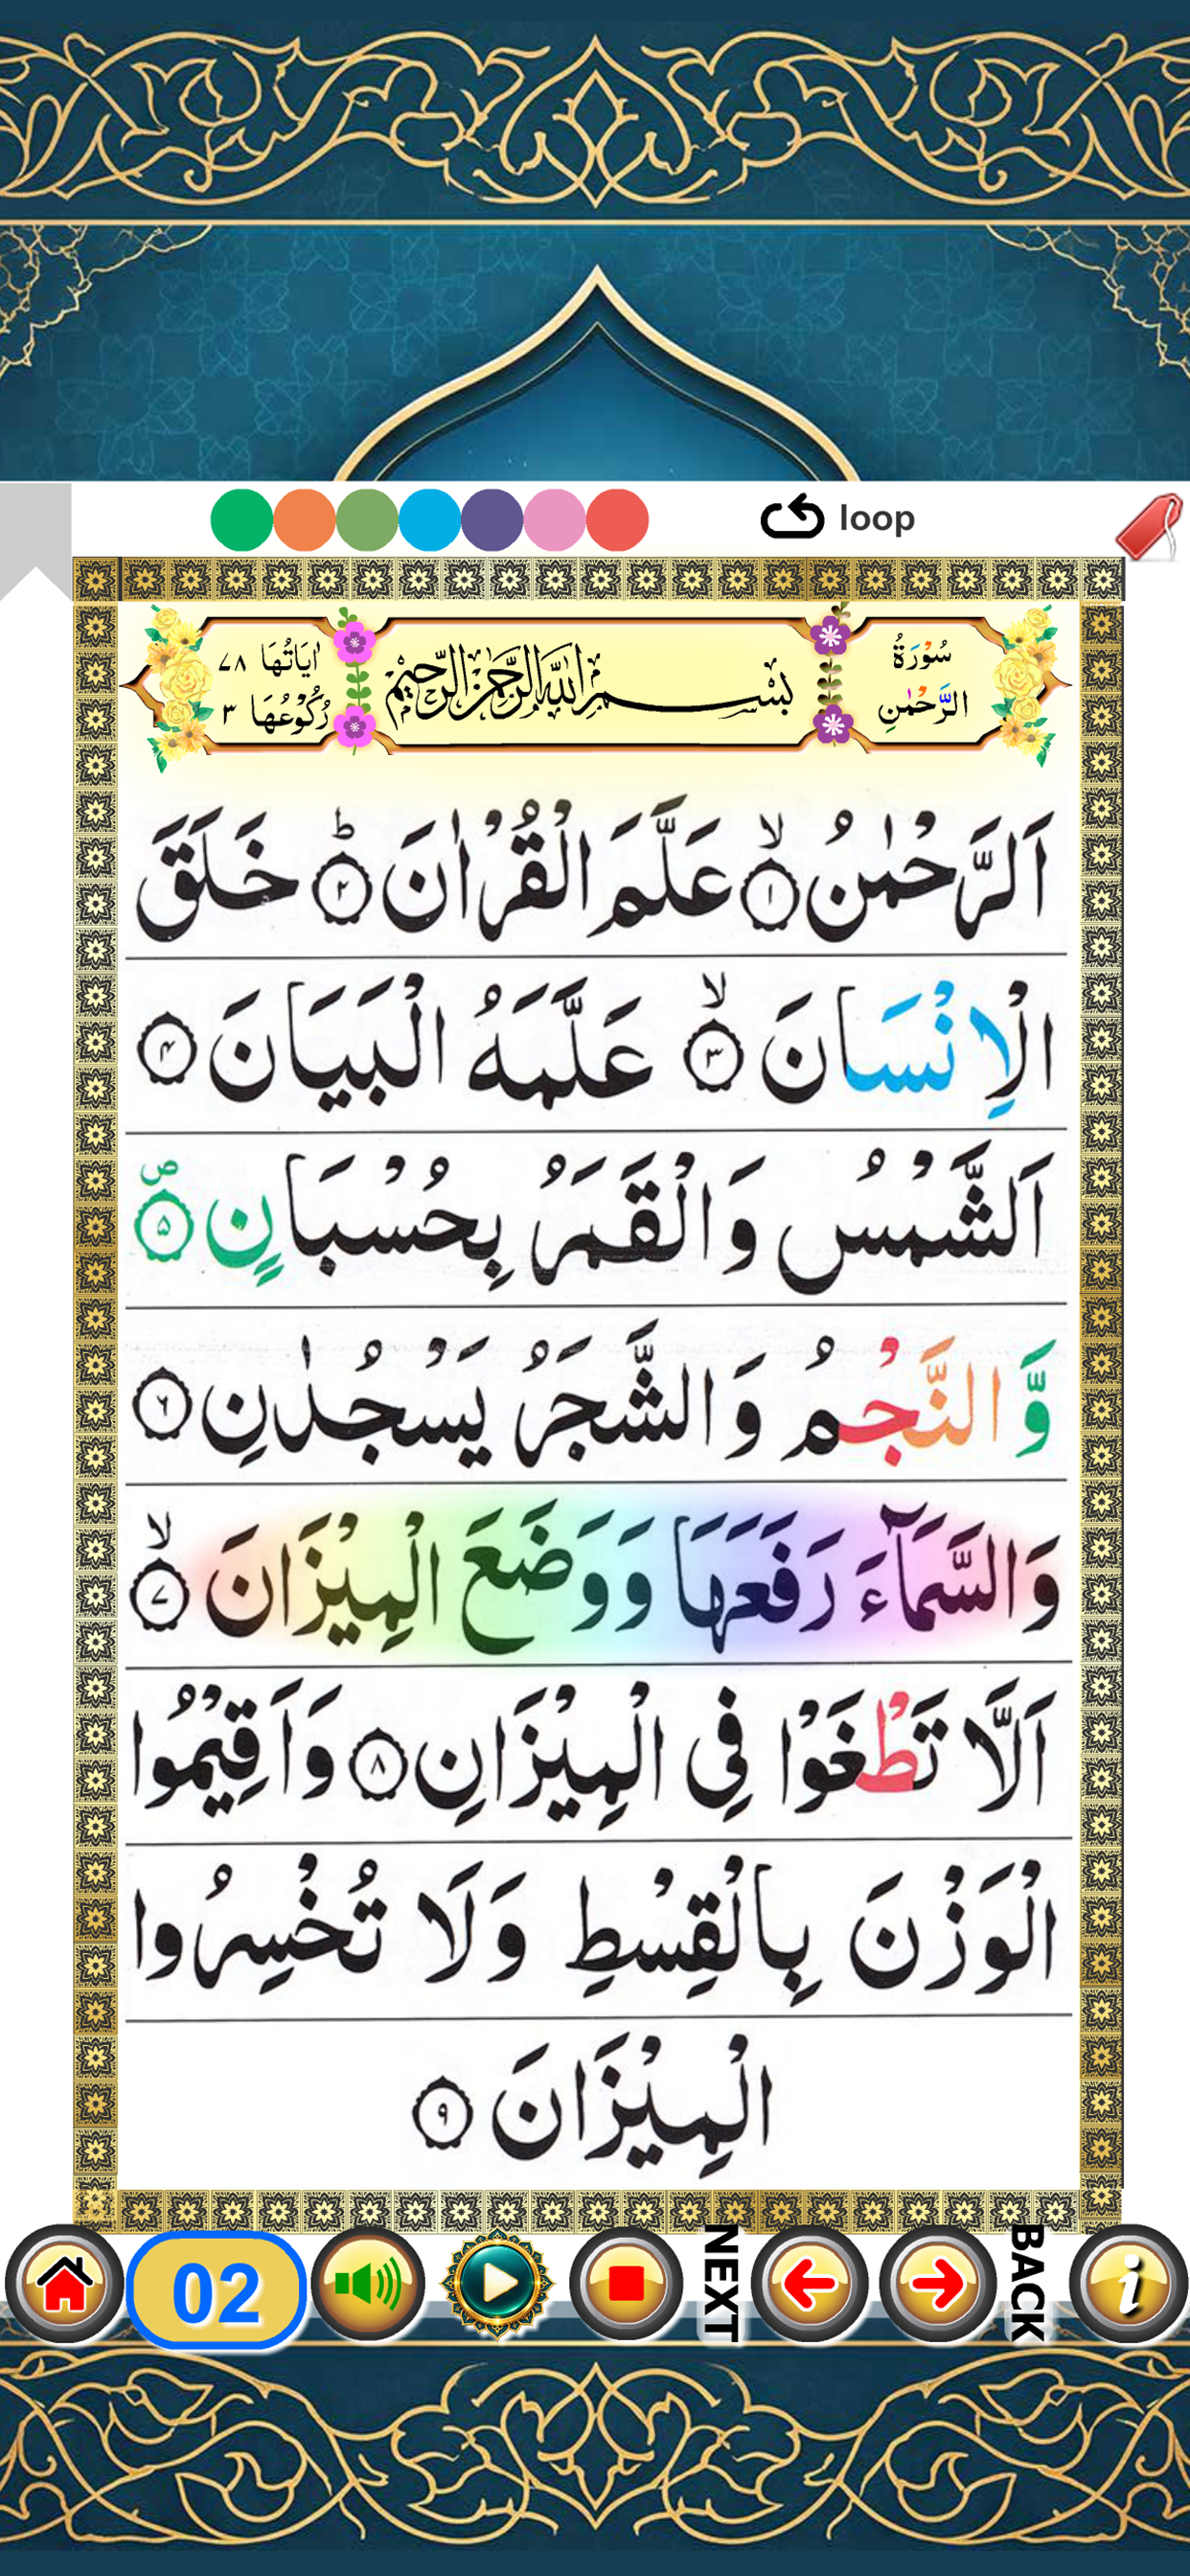 loop
سُوْرَةُ الرَّحْمٰنِ
بِسْمِ اللّٰهِ الرَّحْمٰنِ الرَّحِيْمِ
اٰيَاتُهَا ٧٨
رُكُوْعُهَا ٣
اَلرَّحْمٰنُ ۙ‏﴿١﴾ عَلَّمَ الْقُرْاٰنَ ؕ‏﴿٢﴾ خَلَقَ
الْاِنْسَانَ ۙ‏﴿٣﴾ عَلَّمَهُ الْبَيَانَ ﴿٤﴾
اَلشَّمْسُ وَالْقَمَرُ بِحُسْبَانٍ ۪‏﴿٥﴾
وَّ النَّجْمُ وَالشَّجَرُ يَسْجُدٰنِ ﴿٦﴾
وَالسَّمَآءَ رَفَعَهَا وَوَضَعَ الْمِيْزَانَ ۙ‏﴿٧﴾
اَلَّا تَطْغَوْا فِى الْمِيْزَانِ ﴿٨﴾ وَاَقِيْمُوا
الْوَزْنَ بِالْقِسْطِ وَلَا تُخْسِرُوا
الْمِيْزَانَ ﴿٩﴾
02
NEXT
BACK
i